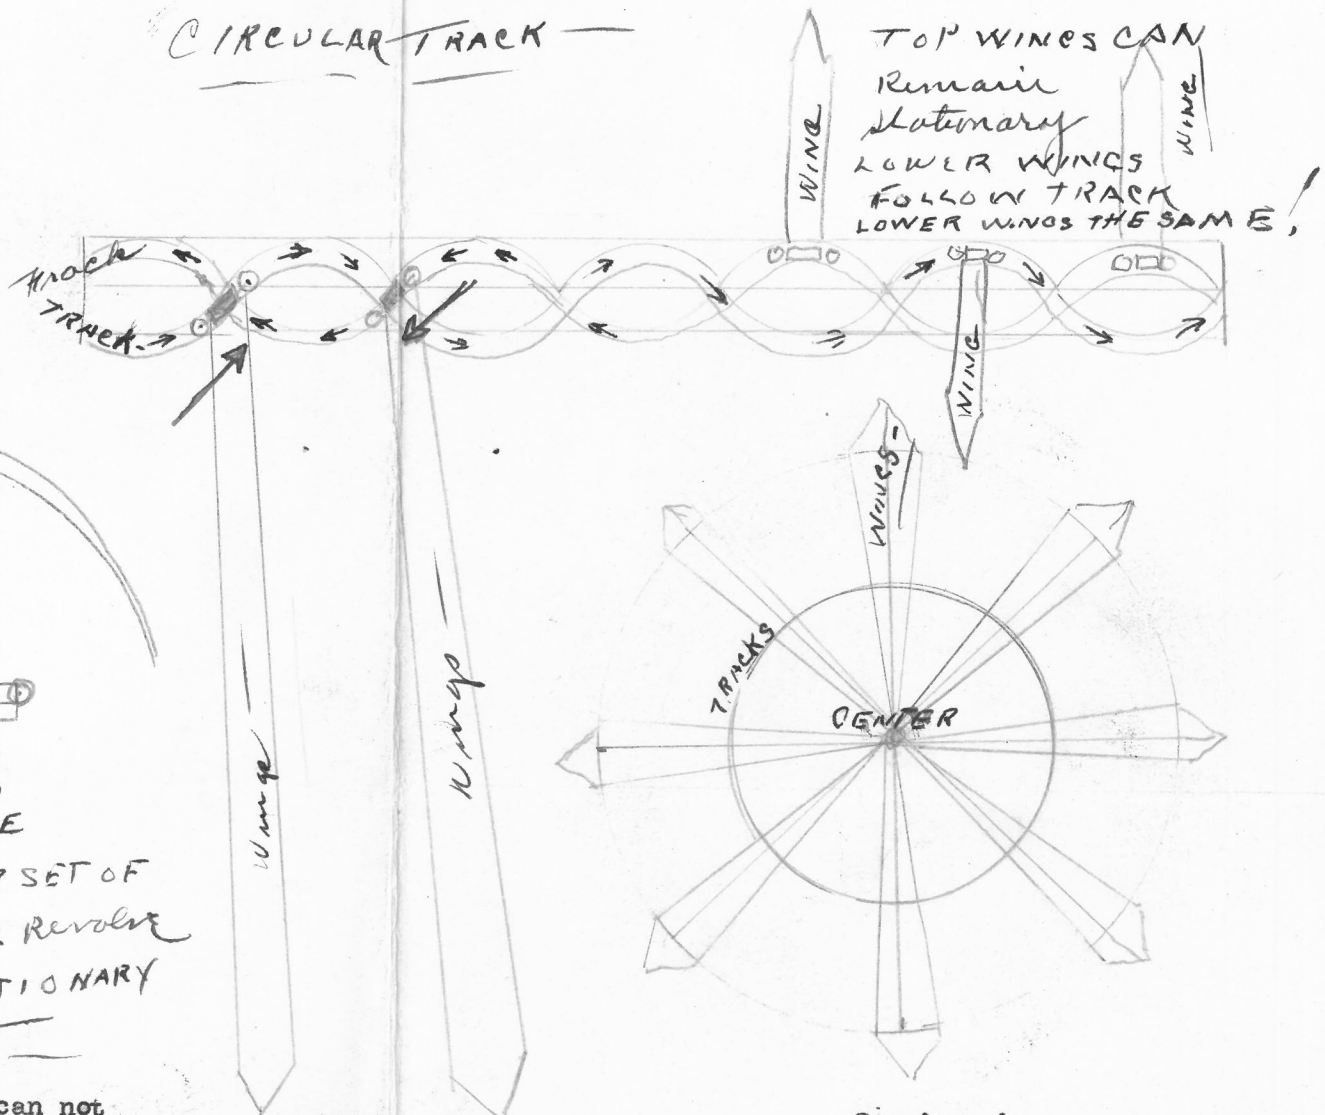 CIRCULAR TRACK
TOP WINGS CAN
Remain
Stationary
LOWER WINGS
FOLLOW TRACK
LOWER WINGS THE SAME!
WING
WING
Track
TRACK
WING
WINGS
TRACKS
CENTER
Wings
Wings
E
SET OF
Revolve
TIONARY
can not